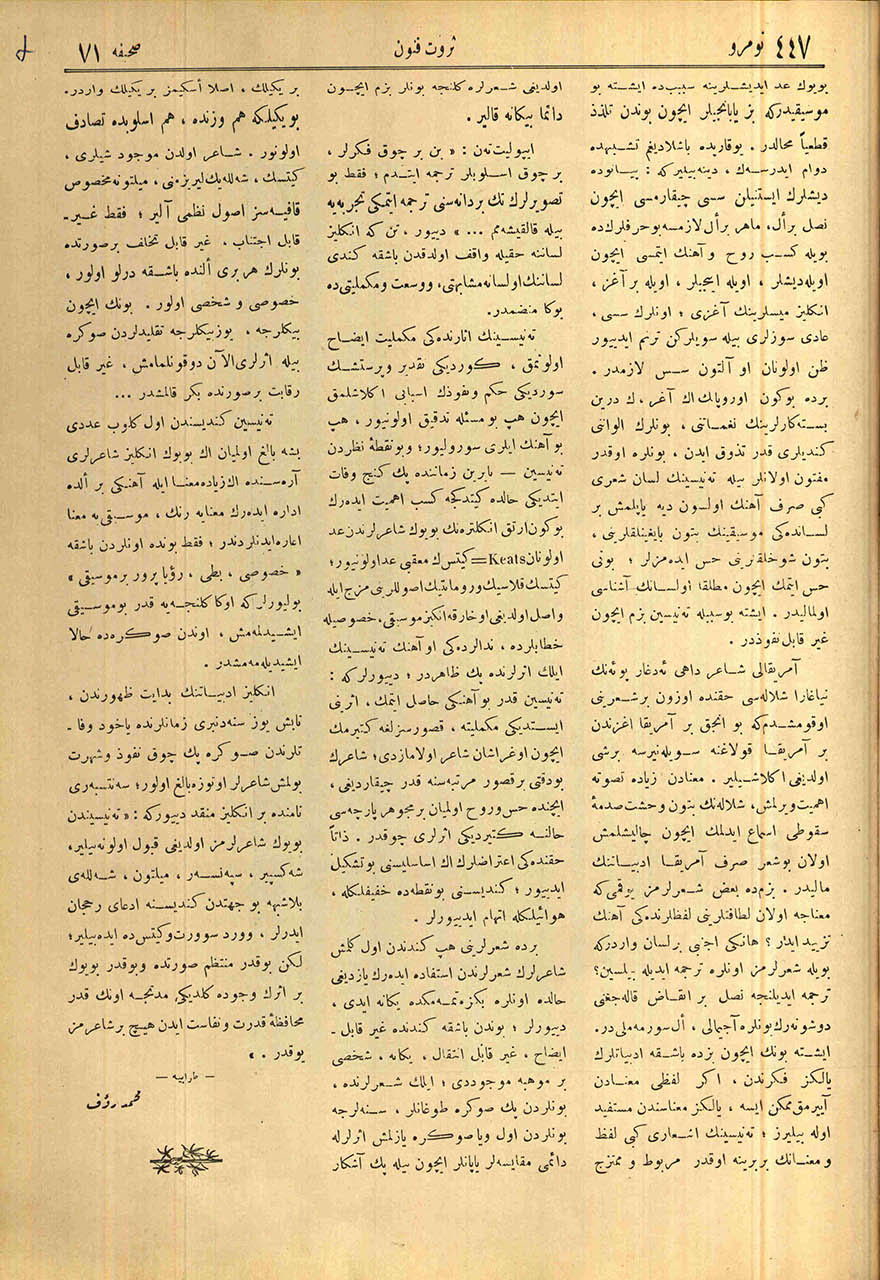 نومرو ٤٤٧
ثروت فنون
صحیفه ٧١
بویوك عد ایدیشلرینه سبب ده ایشته بو
موسیقیدركه بز یابانجیلر ایچون بوندن تلذذ
قطعیاً محالدر. یوقاریده باشلادیغم تشبیهده
دوام ایدرسه‌ك، دینه‌بیلیركه : پیانوده
دیشلرك ایستنیلن سسی چیقارمسی ایچون
نصل برأل، ماهر برأل لازمسه بوحرفلرك‌ده
بویله كسب روح و آهنك ایتمسی ایچون
اویله‌دیشلر ، اویله آغز،
انكلیز میسلرینك آغزی ؛ اونلرك سسی ،
عادی سوزلری بیله سویلركن ترنم ایدییور
ظن اولونان او آلتون سس لازمدر.
برده بوكون اوروپالك اك آغر ، ك درین
بسته‌كارلرینك نغماتنی ، بونلرك الواننی
كندیلری قدر تذوق ایدن ، بونلره اوقدر
مفتون اولانلر بیله ته‌نیسینك لسان شعری
كبی صرف آهنك اولسون دیه یاپلمش بر
لسانده‌كی موسیقینك بتون بایغینلقلرینی ،
بتون شوخلقلرینی حس ایده‌مزلر ؛ بونی
حس ایتمك ایچون مطلقا اولسانك آشناسی
اولمالیدر . ایشته بوسببله ته‌نیسین بزم ایچون
غیر قابل نفوذدر .
آمریقالی شاعر داهی ئه‌دغار پوئه‌نك
نیاغارا شلاله‌سی حقنده اوزون برشعرینی
اوقومشدم‌كه بو آنجق بر آمریقا اغزندن
بر آمریقا قولاغنه سویله‌نیرسه برشی
اولدیغی اكلاشیلیر . معنادن زیاده صوته
اهمیت ویرلمش، شلاله‌نك بتون وحشت صدمهٔ
سقوطی اسماع ایدلمك ایچون چالیشلمش
اولان بوشعر صرف آمریقا ادبیاتنك
مالیدر . بزم‌ده بعض شعرلرمز یوقمی‌كه
معناجه اولان لطافتلرینی لفظلرنده‌كی آهنك
تزیید ایدر؟ هانكی اجنبی بر لسان واردركه
بویله شعرلرمز اونلره ترجمه ایدیله بیلسین؟
ترجمه ایدیلنجه نصل بر انقاض قاله‌جغنی
دوشونه‌رك بونلره آجیمالی ، أل سورمه‌ملی‌در.
ایشته بونك ایچون بزده باشقه ادبیاتلرك
یالكز فكرندن ، اكر لفظی معنادن
آییرمق ممكن ایسه ، یالكز معناسندن مستفید
اوله بیلیرز ؛ ته‌نیسینك اشعاری كبی لفظ
و معنانك بربرینه اوقدر مربوط و ممتزج
اولدیغی شعرلره كلنجه بونلر بزم ایچون
دائما بیكانه قالیر .
ایپولیت‌تن : « بن بر چوق فكرلر ،
بر چوق اسلوبلر ترجمه ایتدم ؛ فقط بو
تصویرلرك تك بردانه‌سنی ترجمه ایتمكی تجربه‌یه
بیله قالقیشه‌مم ... » دییور . تن كه انكلیز
لساننه حقیله واقف اولدقدن باشقه كندی
لساننك اولسانه مشابهتی، ووسعت ومكملیتی‌ده
بوكا منضمدر.
ته‌نیسینك اثارنده‌كی مكملیت ایضاح
اولونمق ، كوردیكی تقدیر وپرستشك
سوردیكی حكم ونفوذك اسبابی اكلاشلمق
ایچون هپ بو مسئله تدقیق اولونیور ، هپ
بو آهنك ایلری سورولیور؛ وبونقطهٔ نظردن
ته‌نیسین — بایرن زماننده پك كنج وفات
ایتدیكی حالده كیتدكجه كسب اهمیت ایده‌رك
بوكون‌ارتق انكلتره‌نك بویوك شاعرلرندن عد
اولونان Keats=كیتس‌ك معقبی عداولونیور؛
كیتسك قلاسیك ورومانتیك اصوللرینی مزج ایله
واصل اولدیغی اوخارقه‌انكیز موسیقی، خصوصیله
خطابلرده ، ندالرده‌كی او آهنك ته‌نیسینك
ایلك اثرلرنده پك ظاهردر ؛ دییورلركه :
ته‌نیسین قدر بو آهنكی حاصل ایتمك ، اثرنی
ایستدیكی مكملیته ، قصورسزلغه كتیرمك
ایچون اوغراشان شاعر اولامازدی؛ شاعرك
بودقتی برقصور مرتبه‌سنه قدر چیقاردیغی ،
ایچنده حس‌وروح اولمیان بر مجوهر پارچه‌سی
حالنه كتیردیكی اثرلری چوقدر . ذاتاً
حقنده‌كی اعتراضلرك اك اساسلیسنی بو تشكیل
ایدییور ؛ كندیسنی بو نقطه‌ده خفیفلكله ،
هوائیلكله اتهام ایدییورلر .
برده شعرلرینی هپ كندندن اول كلمش
شاعرلرك شعرلرندن استفاده ایده‌رك یازدیغی
حالده اونلره بكزه‌تمه‌مكده یكانه ایدی ،
دییورلر ؛ بوندن باشقه كندنده غیر قابل-
ایضاح ، غیر قابل انتقال ، یكانه ، شخصی
بر موهبه موجوددی ؛ ایلك شعرلرنده ،
بونلردن پك صوكره طوغانلر ، سنه‌لرجه
بونلردن اول ویا صوكره یازلمش اثرلرله
دائمی مقایسه‌لر یاپانلر ایچون بیله پك آشكار
بر یكیلك ، اصلا أسكیمز بر یكیلك واردر.
بو یكیلكه هم وزنده ، هم اسلوبده تصادف
اولونور . شاعر اولدن موجود شیلری ،
كیتسك، شه‌للەیك لیریزمنی ، میلتونه مخصوص
قافیه‌سز اصول نظمی آلیر ؛ فقط غیر-
قابل اجتناب ، غیر قابل تخلف برصورتده
بونلرك هر بری ألنده باشقه درلو اولور ،
خصوصی و شخصی اولور . بونك ایچون
بیكلرجه ، یوزبیكلرجه تقلیدلردن صوكره
بیله اثرلری الآن دوقونلمامش ، غیر قابل
رقابت برصورتده بكر قالمشدر ...
ته‌نیسین كندیسندن اول كلوب عددی
بشه بالغ اولمیان اك بویوك انكلیز شاعرلری
آره‌سنده اك‌زیاده معنا ایله آهنكی بر ألده
اداره ایده‌رك معنایه رنك ، موسیقی‌یه معنا
اعاره ایدنلردندر ؛ فقط بونده اونلردن باشقه
« خصوصی ، بطی ، رؤیا پرور بر موسیقی »
بولیورلركه اوكا كلنجه‌یه قدر بوموسیقی
ایشیدلمه‌مش ، اوندن صوكره‌ده حالا
ایشیدیله‌مه‌مشدر .
انكلیز ادبیاتنك بدایت ظهورندن ،
تابش یوز سنه‌دنبری زمانلرنده یاخود وفا-
تلرندن صوكره پك چوق نفوذ وشهرت
بولمش شاعرلر اوتوزه بالغ اولور؛ سه‌نتسبه‌ری
نامنده بر انكلیز منقد دییوركه : « ته‌نیسیندن
بویوك شاعرلرمز اولدیغی قبول اولونه‌بیلیر،
شه‌كسپیر ، سپه‌نسه‌ر ، میلتون ، شه‌للەی
بلاشبهه بو جهتدن كندیسنه ادعای رجحان
ایدرلر ، وورد سوورت وكیتس‌ده ایده‌بیلیر؛
لكن بوقدر منتظم صورتده وبوقدر بویوك
بر اثرك وجوده كلدیكی مدتجه اونك قدر
محافظهٔ قدرت و نفاست ایدن هیچ بر شاعرمز
یوقدر . »
— طرابیه —
محمد رؤف